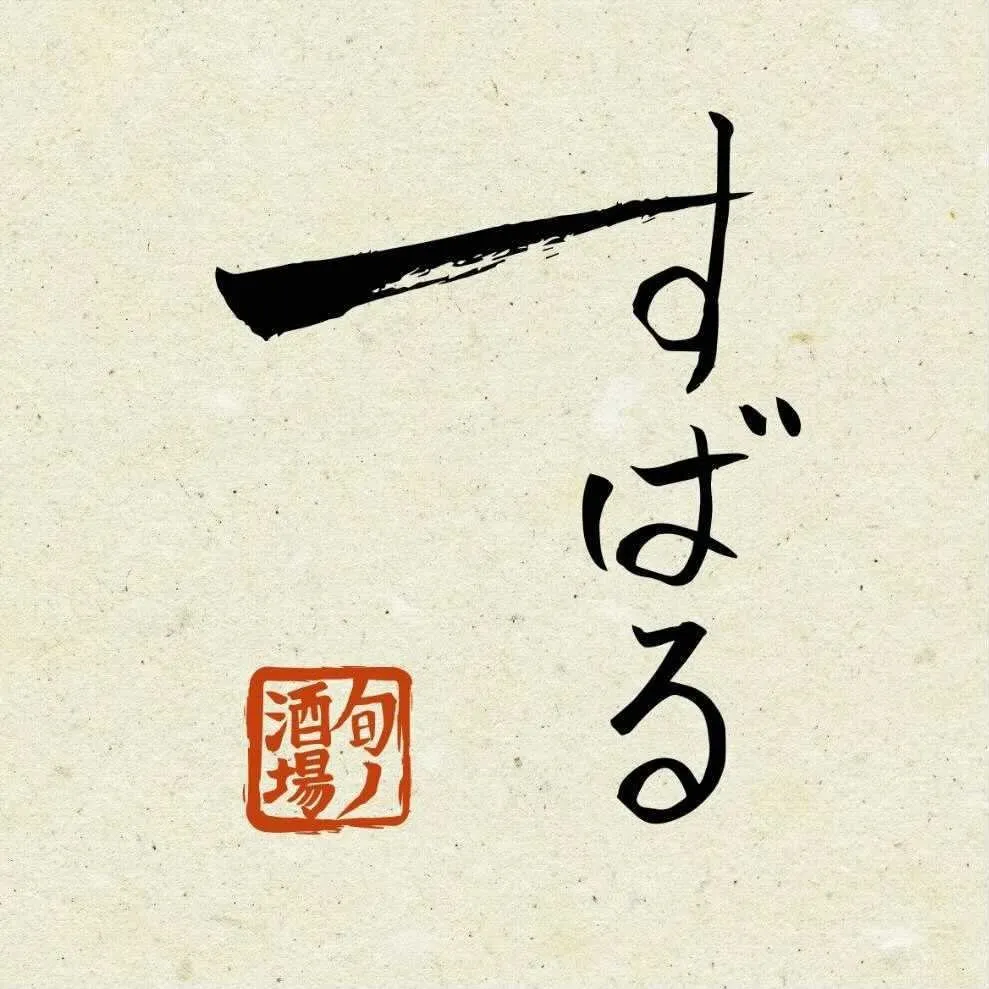 すばる
旬ノ
酒場